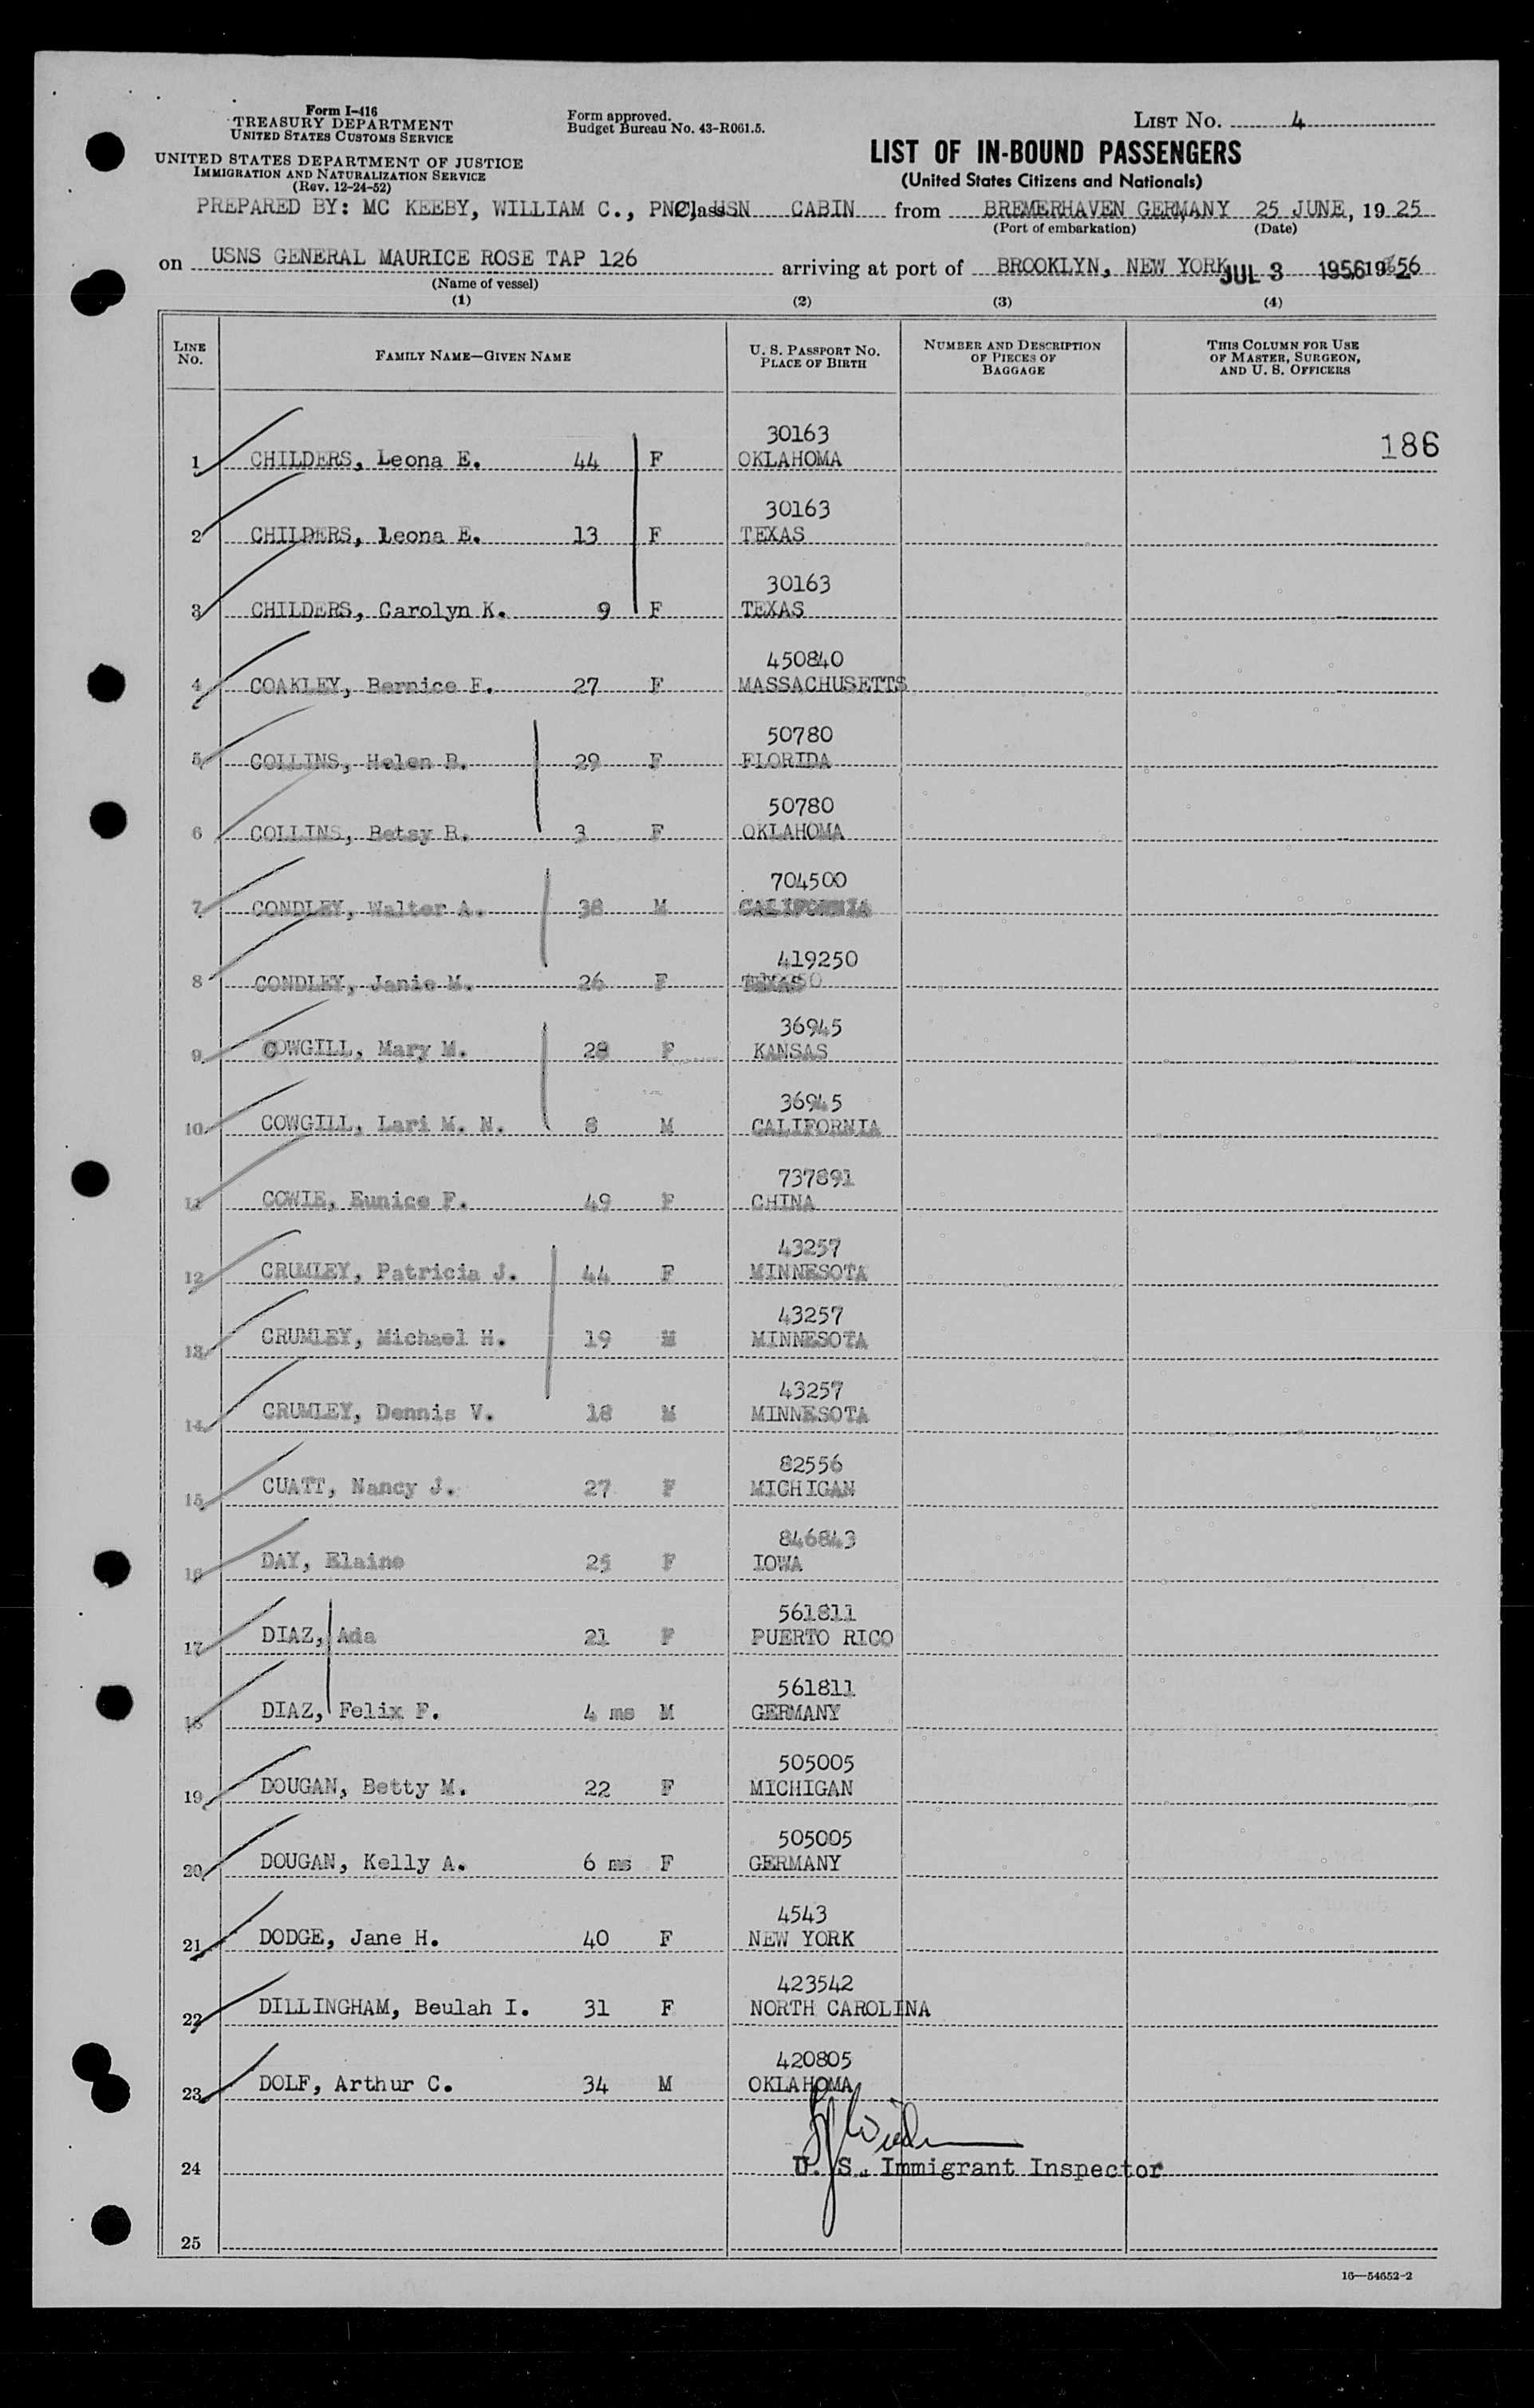 Form I-416
TREASURY DEPARTMENT
UNITED STATES CUSTOMS SERVICE
UNITED STATES DEPARTMENT OF JUSTICE
IMMIGRATION AND NATURALIZATION SERVICE
(Rev. 12-24-52)
Form approved.
Budget Bureau No. 43-R061.5.
LIST NO. 4
LIST OF IN-BOUND PASSENGERS
(United States Citizens and Nationals)
PREPARED BY: MC KEEBY, WILLIAM C., PNC, USN Class CABIN from BREMERHAVEN GERMANY 25 JUNE, 19 25
(Port of embarkation) (Date)
on USNS GENERAL MAURICE ROSE TAP 126 arriving at port of BROOKLYN, NEW YORK JUL 3 1956 19 56
(Name of vessel)
(1) (2) (3) (4)
LINE NO. FAMILY NAME—GIVEN NAME U. S. PASSPORT NO. PLACE OF BIRTH NUMBER AND DESCRIPTION OF PIECES OF BAGGAGE THIS COLUMN FOR USE OF MASTER, SURGEON, AND U. S. OFFICERS
30163
1 CHILDERS, Leona E. 44 F OKLAHOMA 186
30163
2 CHILDERS, Leona E. 13 F TEXAS
30163
3 CHILDERS, Carolyn K. 9 F TEXAS
450840
4 COAKLEY, Bernice F. 27 F MASSACHUSETTS
50780
5 COLLINS, Helen B. 29 F FLORIDA
50780
6 COLLINS, Betsy R. 3 F OKLAHOMA
704500
7 CONDLEY, Walter A. 38 M CALIFORNIA
419250
8 CONDLEY, Janie M. 26 F TEXAS
36945
9 COWGILL, Mary M. 28 F KANSAS
36945
10 COWGILL, Lari M. N. 8 M CALIFORNIA
737891
11 COWIE, Eunice F. 49 F CHINA
43257
12 CRUMLEY, Patricia J. 44 F MINNESOTA
43257
13 CRUMLEY, Michael H. 19 M MINNESOTA
43257
14 CRUMLEY, Dennis V. 18 M MINNESOTA
82556
15 CUATT, Nancy J. 27 F MICHIGAN
846843
16 DAY, Elaine 25 F IOWA
561811
17 DIAZ, Ada 21 F PUERTO RICO
561811
18 DIAZ, Felix F. 4 ms M GERMANY
505005
19 DOUGAN, Betty M. 22 F MICHIGAN
505005
20 DOUGAN, Kelly A. 6 ms F GERMANY
4543
21 DODGE, Jane H. 40 F NEW YORK
423542
22 DILLINGHAM, Beulah I. 31 F NORTH CAROLINA
420805
23 DOLF, Arthur C. 34 M OKLAHOMA
24 U. S. Immigrant Inspector
25
16—54652-2